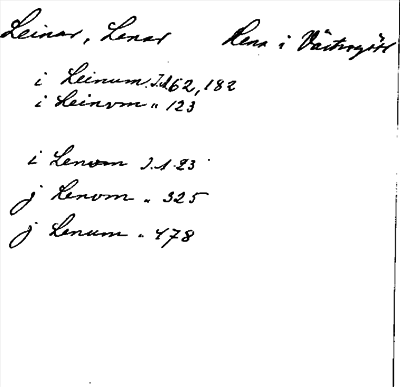 Leinar, Lenar Lena i Västergötl
i Leinum J.1.62, 182
i Leinvm " 123
i Lenom J.1.23
j Lenom " 325
j Lenum " 478